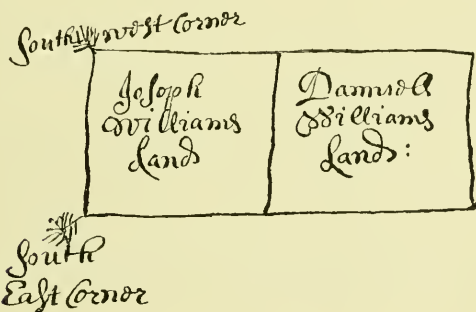 South west Corner
Joseph
Williams
Land
Daniell
Williams
Land:
South
East Corner